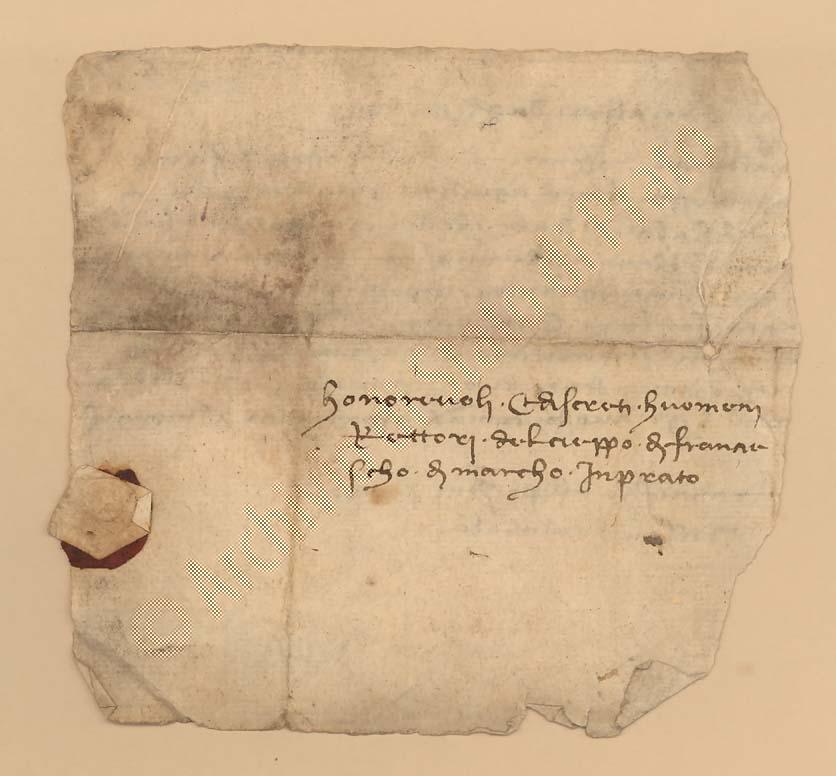 honorevoli · Et discreti · huomeni
Rettori · del cieppo · di francie
scho · di marcho · Inprato
© Archivio di Stato di Prato